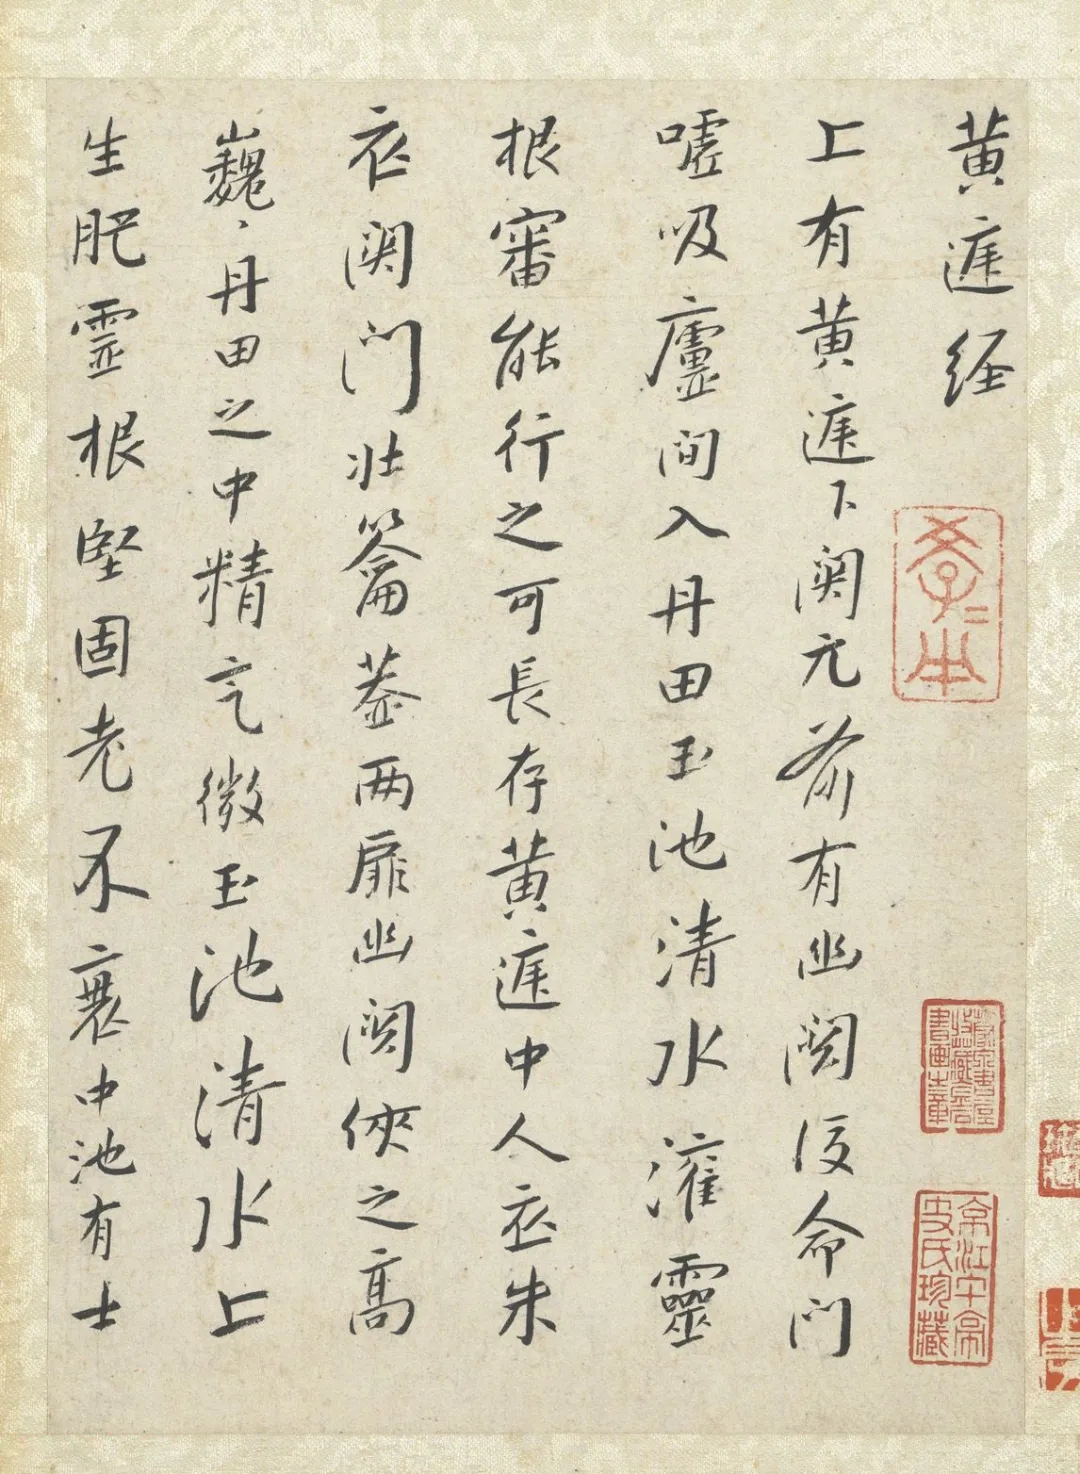 黄庭经
上有黄庭下关元前有幽关后命门
嘘吸廬间入丹田玉池清水灌靈
根審能行之可長存黄庭中人衣朱
衣关门壮籥盖两扉幽关侠之高
巍〻丹田之中精气微玉池清水上
生肥灵根堅固老不衰中池有士